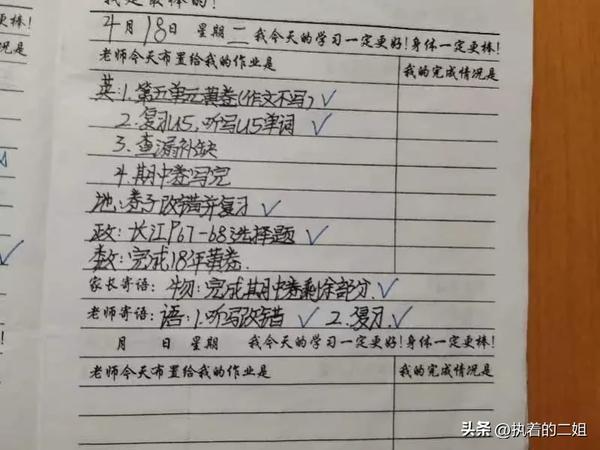 我是最棒的!
4月18日 星期二 我今天的学习一定更好!身体一定更棒!
老师今天布置给我的作业是 我的完成情况是
英:1.第五单元黄卷(作文不写)✓
2.复习U5,听写U5单词 ✓
3.查漏补缺
4.期中卷写完
地:卷子改错并复习 ✓
政:长江P67-68选择题 ✓
数:完成18年黄卷.
家长寄语: 物:完成期中卷剩余部分.✓
老师寄语: 语:1.听写改错 ✓ 2.复习.✓
月 日 星期 我今天的学习一定更好!身体一定更棒!
老师今天布置给我的作业是 我的完成情况是
头条 @执着的二姐